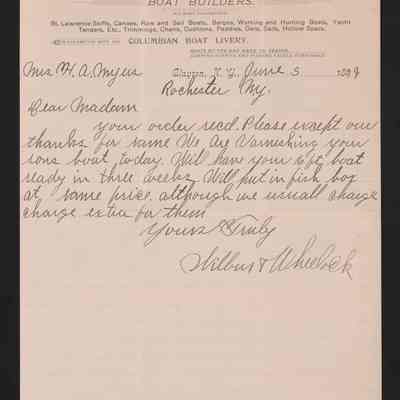 BOAT BUILDERS.
St. Lawrence Skiffs, Canoes, Row and Sail Boats, Barges, Working and Hunting Boats, Yacht
Tenders, Etc., Trimmings, Chairs, Cushions, Paddles, Oars, Sails, Hollow Spars.
COLUMBIAN BOAT LIVERY.
BOATS BY THE DAY WEEK OR SEASON.
Mrs. H. A. Myers Clayton, N. Y., June 5 1899
Rochester Ny.
Dear Madam
Your order recd. Please except our
thanks for same We Are Varnishing your
sons boat today. Will have your boat
ready in three weeks. Will put in fish box
at same price. although we usuall charge
charge extra for them
Yours Truly
Wilbur & Wheelock